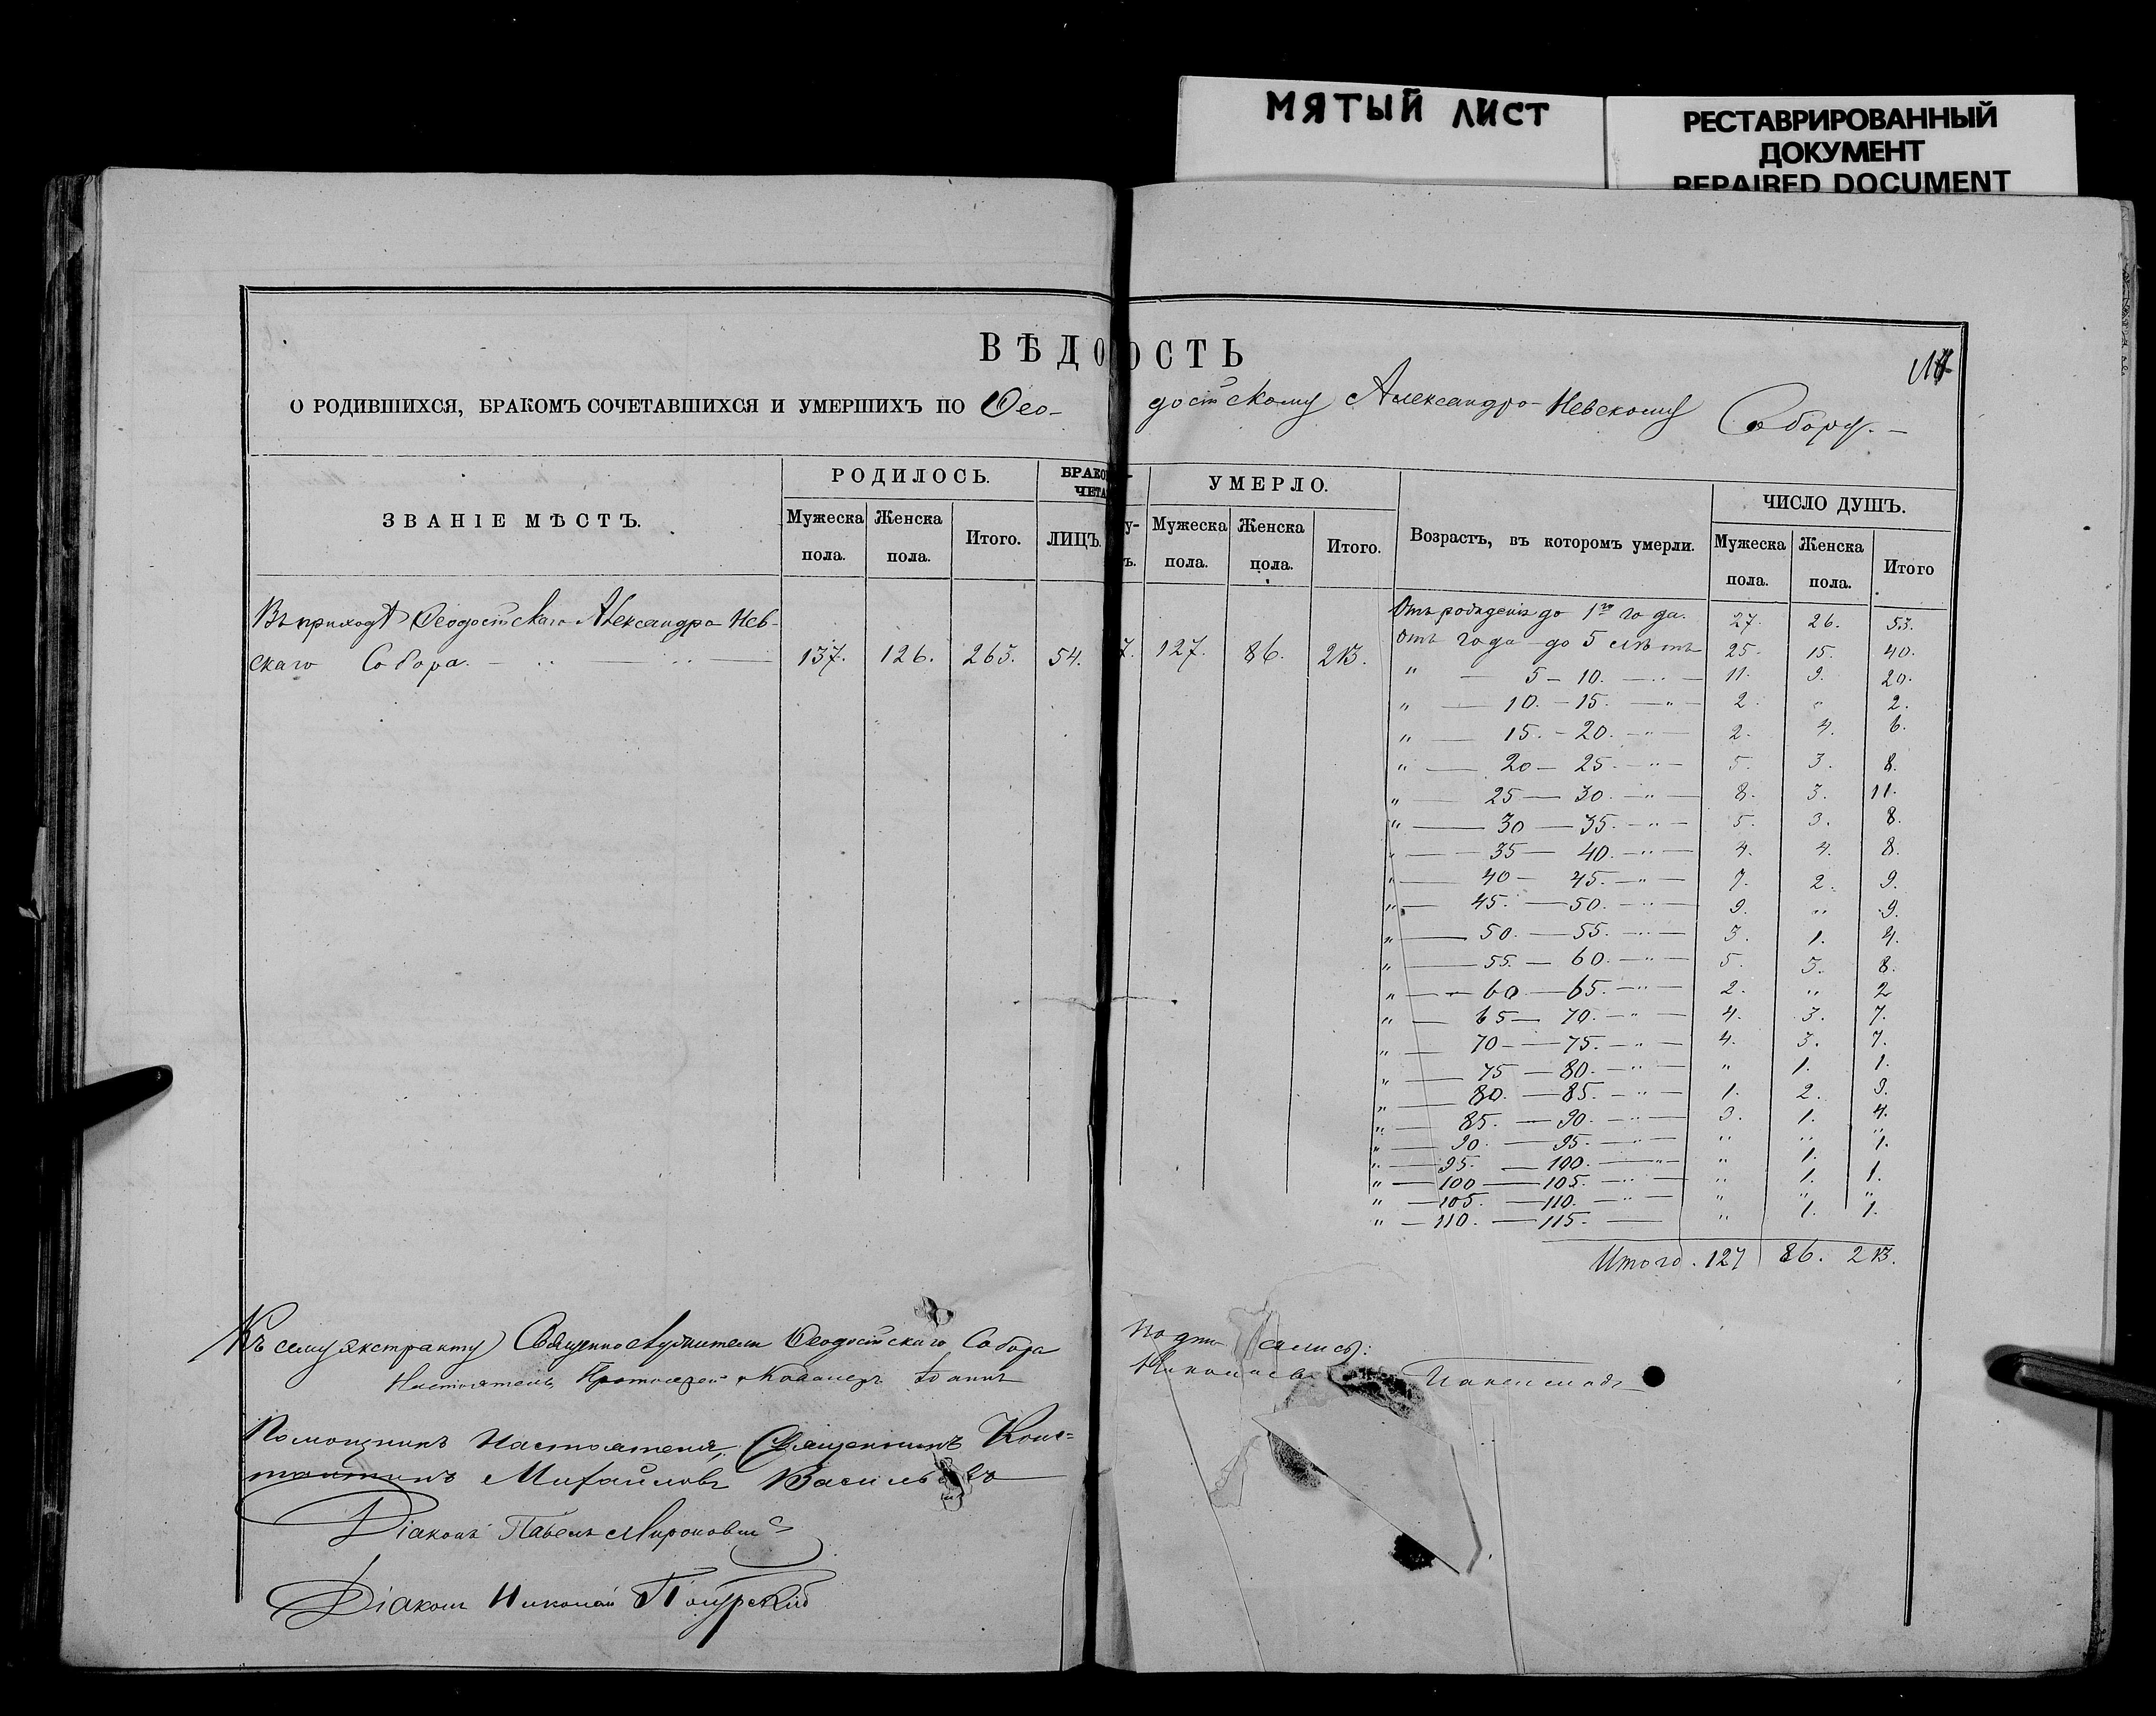 МЯТЫЙ ЛИСТ
РЕСТАВРИРОВАННЫЙ
ДОКУМЕНТ
REPAIRED DOCUMENT
ВѢДО ОСТЬ
О РОДИВШИХСЯ, БРАКОМЪ СОЧЕТАВШИХСЯ И УМЕРШИХЪ ПО Ѳео- досійскому Александро-Невскому Собору. –
ЗВАНІЕ МѢСТЪ.
РОДИЛОСЬ.
Мужеска пола.
Женска пола.
Итого.
БРАКО
ЧЕТА
ЛИЦЪ.
УМЕРЛО.
Мужеска пола.
Женска пола.
Итого.
Возрастъ, въ которомъ умерли.
ЧИСЛО ДУШЪ.
Мужеска пола.
Женска пола.
Итого
Въ приходѣ Ѳеодосійскаго Александро-Нев-
скаго Собора. 137. 126. 263. 54. 7. 127. 86. 213.
Отъ рожденія до 1го года. 27. 26. 53.
отъ года до 5 лѣтъ 25. 15. 40.
" — 5 – 10. — " — 11. 9. 20.
" — 10. – 15. — " — 2. " 2.
" — 15. – 20. — " — 2. 4. 6.
" — 20 – 25. — " — 5. 3. 8.
" — 25 — 30. — " — 8. 3. 11.
" — 30 — 35. — " — 5. 3. 8.
" — 35 — 40. — " — 4. 4. 8.
" — 40 — 45. — " — 7. 2. 9.
" — 45. — 50. — " — 9. " 9.
" — 50. — 55. — " — 3. 1. 4.
" — 55. — 60. — " — 5. 3. 8.
" — 60 — 65. — " — 2. " 2
" — 65 — 70. — " — 4. 3. 7.
" — 70 — 75. — " — 4. 3. 7.
" — 75 — 80. — " — " 1. 1.
" — 80. — 85. — " — 1. 2. 3.
" — 85. — 90. — " — 3. 1. 4.
" — 90. — 95. — " — " " "
" — 95. — 100. — " — " 1. 1.
" — 100 — 105. — " — " 1. 1.
" — 105. — 110. — " — " " "
" — 110. — 115. — " 1. 1.
Итого. 127 86. 213.
Къ сему экстракту Священнослужители Ѳеодосійскаго Собора подписались:
Настоятель, Протоіерей Кавалеръ Іоаннъ
Помощникъ Настоятеля, Священникъ Конс-
тантинъ Михайловъ Васильевъ
Діаконъ Павелъ Мироновичъ
Діаконъ Николай